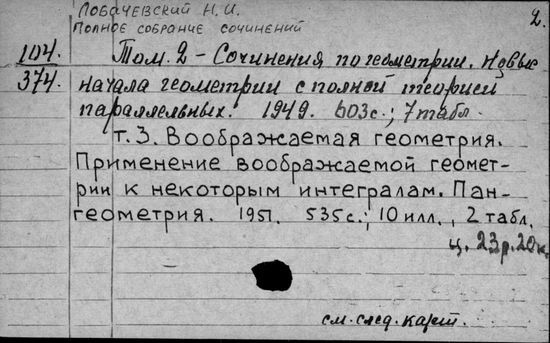 Лобачевский Н. И.
2.
Полное собрание сочинений
104. Том. 2 - Сочинения по геометрии. Новые
374. начала геометрии с полной теорией
параллельных. 1949. 603с.; 7 табл.
т. 3. Воображаемая геометрия.
Применение воображаемой геомет-
рии к некоторым интегралам. Пан-
геометрия. 1951. 535с.; 10 илл., 2 табл.
ц. 23р.20к.
см. след. карт.